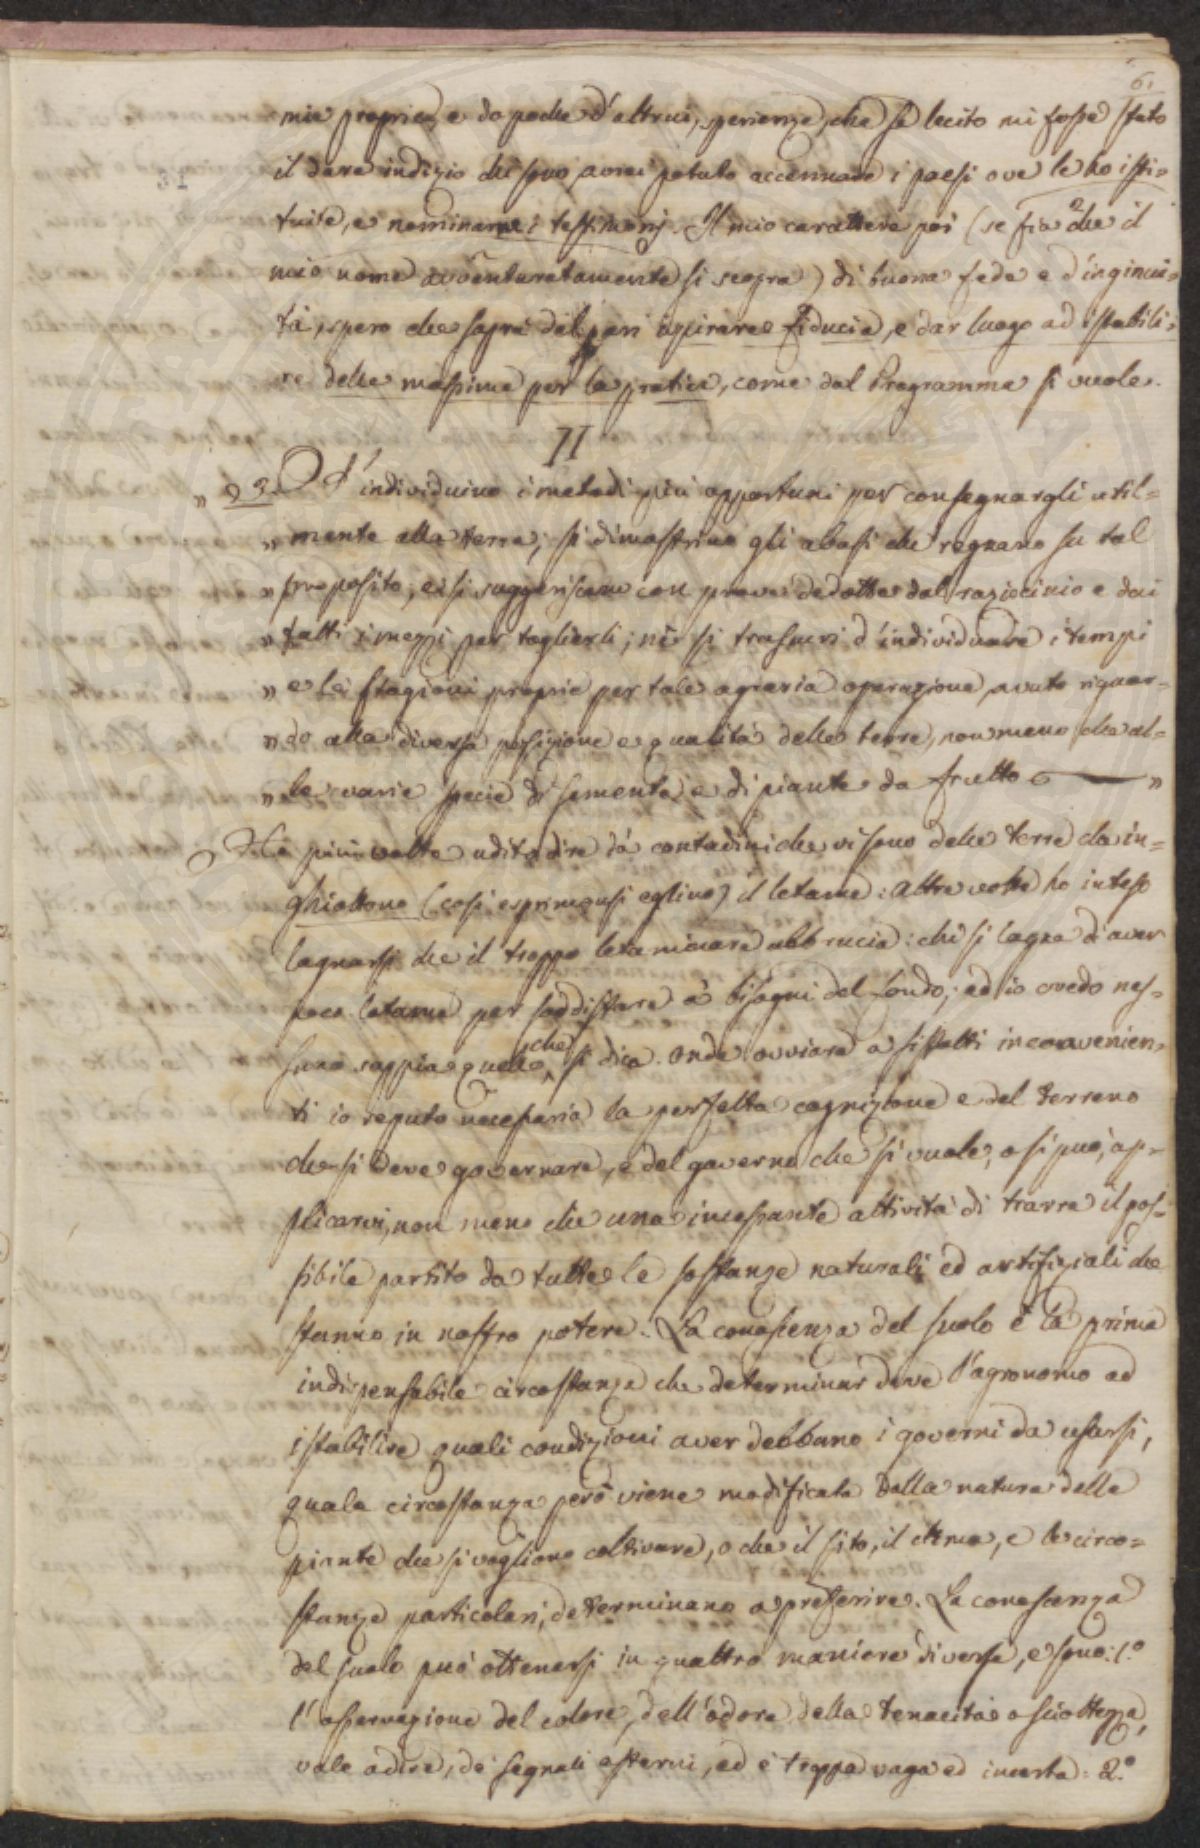 61
mie proprie, e da poche d'altrui, sperienze, che se lecito mi fosse stato
il dare indizio di essere avrei potuto accennare i paesi ove le ho isti=
tuite, e nominarne i testimonj. Il mio carattere poi (se fia che il
mio nome avventuratamente si scopra) di buona fede e d'ingenui=
tà, spero che saprà del pari ispirare fiducia, e dar luogo ad istabili=
re delle massime per la pratica, come dal Programma si vuole.
II
" 23. S'individuino i metodi più opportuni per consegnargli util=
" mente alla terra, si dimostrino gli abusi che regnano su tal
" proposito, e si suggeriscano con prove dedotte dal raziocinio e dai
" fatti i mezzi per toglierli; nè si trascuri d'individuare i tempi
" e le stagioni proprie per tale agraria operazione, avuto riguar=
" do alla diversa posizione e qualità delle terre, non meno che al=
" le varie specie di semente e di piante da frutto "
Ho più volte udito dire da' contadini che vi sono delle terre che in=
ghiottono (così esprimonsi eglino) il letame: altre volte ho inteso
lagnarsi che il troppo letaminare abbrucia: chi si lagna di aver
poco letame per soddisfare a' bisogni del fondo; ed io credo nes=
suno sappia quello che si dica. Onde ovviare a siffatti inconvenien=
ti io reputo necessaria la perfetta cognizione e del terreno
che si deve governare, e del governo che si vuole, o si può, ap=
plicarvi, non meno che una incessante attività di trarre il pos=
sibile partito da tutte le sostanze naturali ed artifiziali che
stanno in nostro potere. La conoscenza del suolo è la prima
indispensabile circostanza che determinar deve l'agronomo ad
istabilire quali condizioni aver debbano i governi da usarsi,
quale circostanza però viene modificata dalla natura delle
piante che si vogliono coltivare, o che il sito, il clima, e le circo=
stanze particolari, determinano a preferire. La conoscenza
del suolo può ottenersi in quattro maniere diverse, e sono: 1.º
l'osservazione del colore, dell'odore della tenacità o scioltezza,
vale a dire, de' segnali esterni, ed è troppo vaga ed incerta: 2.º